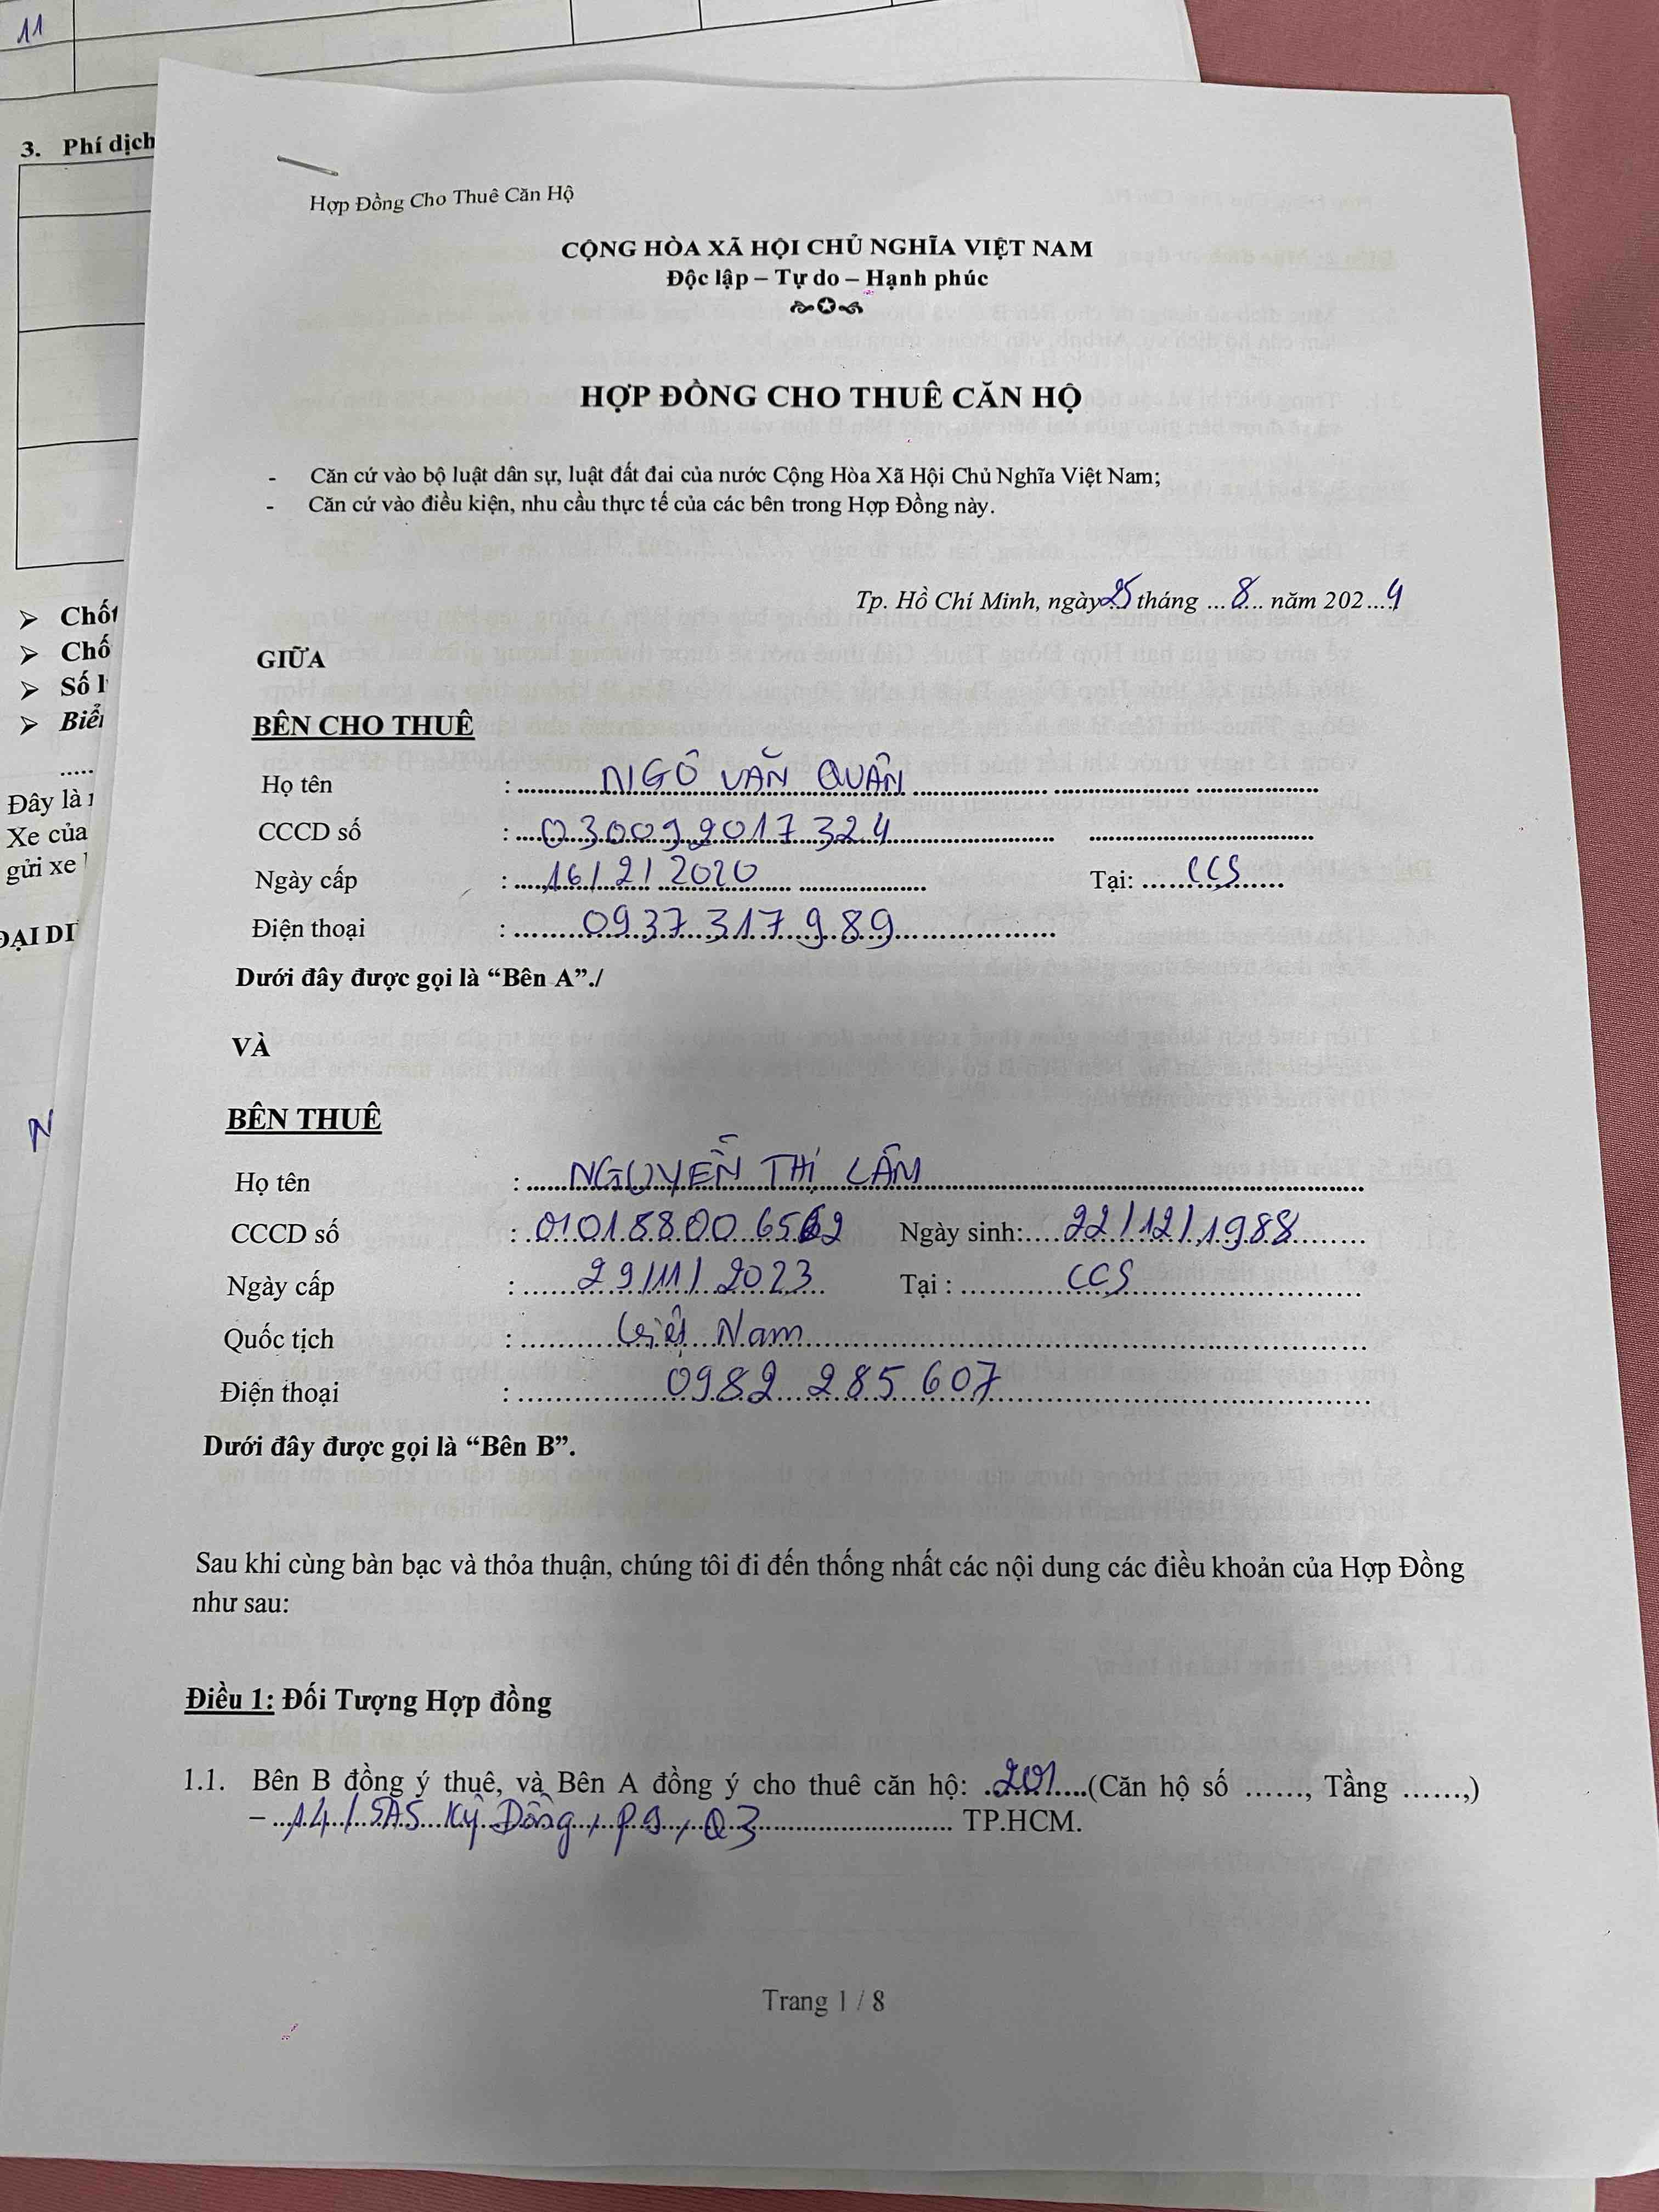 11
3. Phí dịch
Chốt
Chố
Số l
Biể
Đây là
Xe của
gửi xe
ĐẠI DI
N
Hợp Đồng Cho Thuê Căn Hộ
CỘNG HÒA XÃ HỘI CHỦ NGHĨA VIỆT NAM
Độc lập – Tự do – Hạnh phúc
HỢP ĐỒNG CHO THUÊ CĂN HỘ
- Căn cứ vào bộ luật dân sự, luật đất đai của nước Cộng Hòa Xã Hội Chủ Nghĩa Việt Nam;
- Căn cứ vào điều kiện, nhu cầu thực tế của các bên trong Hợp Đồng này.
Tp. Hồ Chí Minh, ngày 25 tháng ...8... năm 202...4
GIỮA
BÊN CHO THUÊ
Họ tên : NGÔ VĂN QUÂN
CCCD số : 030092017324
Ngày cấp : 16/2/2020 Tại: CCS
Điện thoại : 0937 317 989
Dưới đây được gọi là “Bên A”./
VÀ
BÊN THUÊ
Họ tên : NGUYỄN THỊ LÂM
CCCD số : Ngày sinh: 22/12/1988
Ngày cấp : 29/11/2023 Tại : CCS
Quốc tịch : Việt Nam
Điện thoại : 0982 285 607
Dưới đây được gọi là “Bên B”.
Sau khi cùng bàn bạc và thỏa thuận, chúng tôi đi đến thống nhất các nội dung các điều khoản của Hợp Đồng
như sau:
Điều 1: Đối Tượng Hợp đồng
1.1. Bên B đồng ý thuê, và Bên A đồng ý cho thuê căn hộ: 201 (Căn hộ số ......, Tầng ......,)
– 14/5A5 Kỳ Đồng, P9, Q3 TP.HCM.
Trang 1 / 8